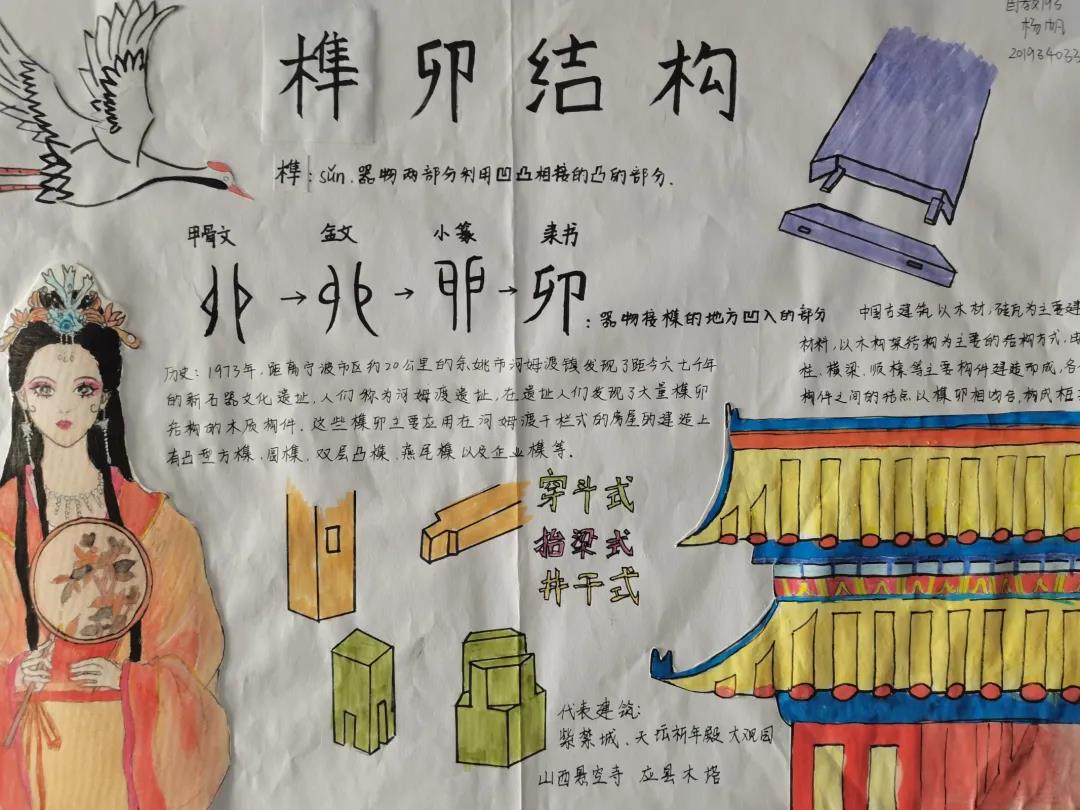 榫卯结构
杨帆
榫：sǔn.器物两部分利用凹凸相接的凸的部分.
甲骨文 金文 小篆 隶书
→ → → 卯：器物接榫的地方凹入的部分
历史：1973年，距离宁波市区约20公里的余姚市河姆渡镇发现了距今六七千年
的新石器文化遗址，人们称为河姆渡遗址，在遗址人们发现了大量榫卯
结构的木质构件．这些榫卯主要应用在河姆渡干栏式的房屋的建造上
有凸型方榫、圆榫、双层凸榫、燕尾榫以及企业榫等．
中国古建筑以木材，砖瓦为主要建
材料，以木构架结构为主要的结构方式，由
柱、横梁、顺檩等主要构件建造而成，各
构件之间的结点以榫卯相吻合，构成框
穿斗式
抬梁式
井干式
代表建筑：
紫禁城、天坛祈年殿 大观园
山西悬空寺 应县木塔